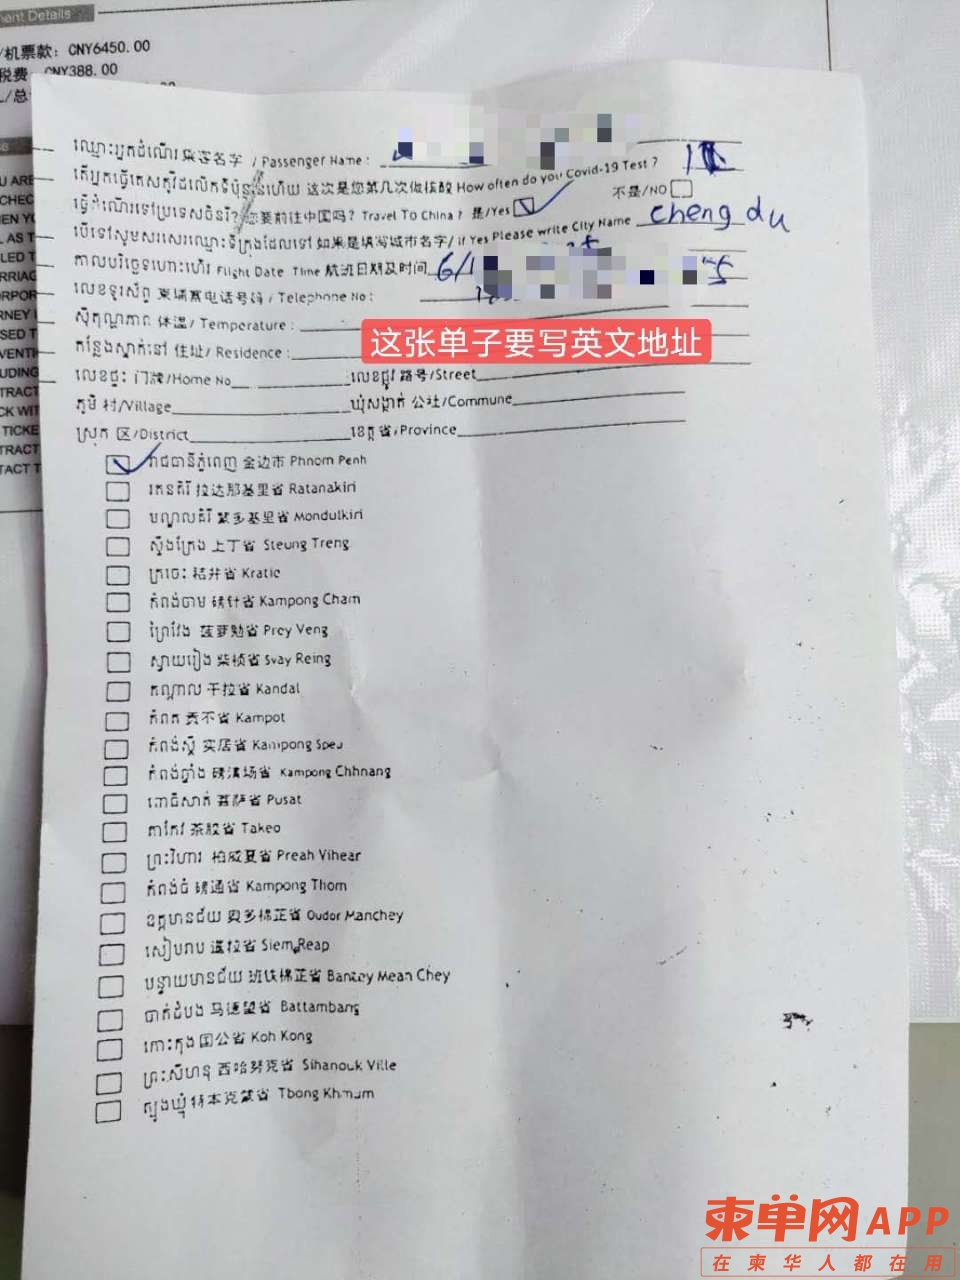 ment Details
/机票款: CNY6450.00
税费: CNY388.00
ឈ្មោះអ្នកដំណើរ 乘客名字 / Passenger Name:
តើអ្នកធ្វើតេសកូវីដលើកទីប៉ុន្មានហើយ 这次是您第几次做核酸 How often do you Covid-19 Test ?
ធ្វើដំណើរទៅប្រទេសចិនរឺ? 您要前往中国吗? Travel To China? 是/Yes 不是/NO
បើទៅសូមសរសេរឈ្មោះទីក្រុងដែលទៅ 如果是填写城市名字/ if Yes Please write City Name cheng du
កាលបរិច្ឆេទហោះហើរ Flight Date Time 航班日期及时间
លេខទូរស័ព្ទ 柬埔寨电话号码 / Telephone No:
សីតុណ្ហភាព 体温 / Temperature :
这张单子要写英文地址
កន្លែងស្នាក់នៅ 住址/ Residence :
លេខផ្ទះ 门牌/Home No លេខផ្លូវ 路号/Street
ភូមិ 村/Village ឃុំសង្កាត់ 公社/Commune
ស្រុក 区/District ខេត្ត 省/Province
រាជធានីភ្នំពេញ 金边市 Phnom Penh
រតនគិរី 拉达那基里省 Ratanakiri
មណ្ឌលគិរី 蒙多基里省 Mondulkiri
ស្ទឹងត្រែង 上丁省 Steung Treng
ក្រចេះ 桔井省 Kratie
កំពង់ចាម 磅针省 Kampong Cham
ព្រៃវែង 菠萝勉省 Prey Veng
ស្វាយរៀង 柴桢省 Svay Reing
កណ្តាល 干拉省 Kandal
កំពត 贡不省 Kampot
កំពង់ស្ពឺ 实居省 Kampong Speu
កំពង់ឆ្នាំង 磅清场省 Kampong Chhnang
ពោធិសាត់ 菩萨省 Pusat
តាកែវ 茶胶省 Takeo
ព្រះវិហារ 柏威夏省 Preah Vihear
កំពង់ធំ 磅通省 Kampong Thom
ឧត្តមានជ័យ 奥多棉芷省 Oudor Manchey
សៀមរាប 暹粒省 Siem Reap
បន្ទាយមានជ័យ 班铁棉芷省 Bantey Mean Chey
បាត់ដំបង 马德望省 Battambang
កោះកុង 国公省 Koh Kong
ព្រះសីហនុ 西哈努克省 Sihanouk Ville
ត្បូងឃ្មុំ 特本克蒙省 Tbong Khmum
柬单网APP
在柬华人都在用